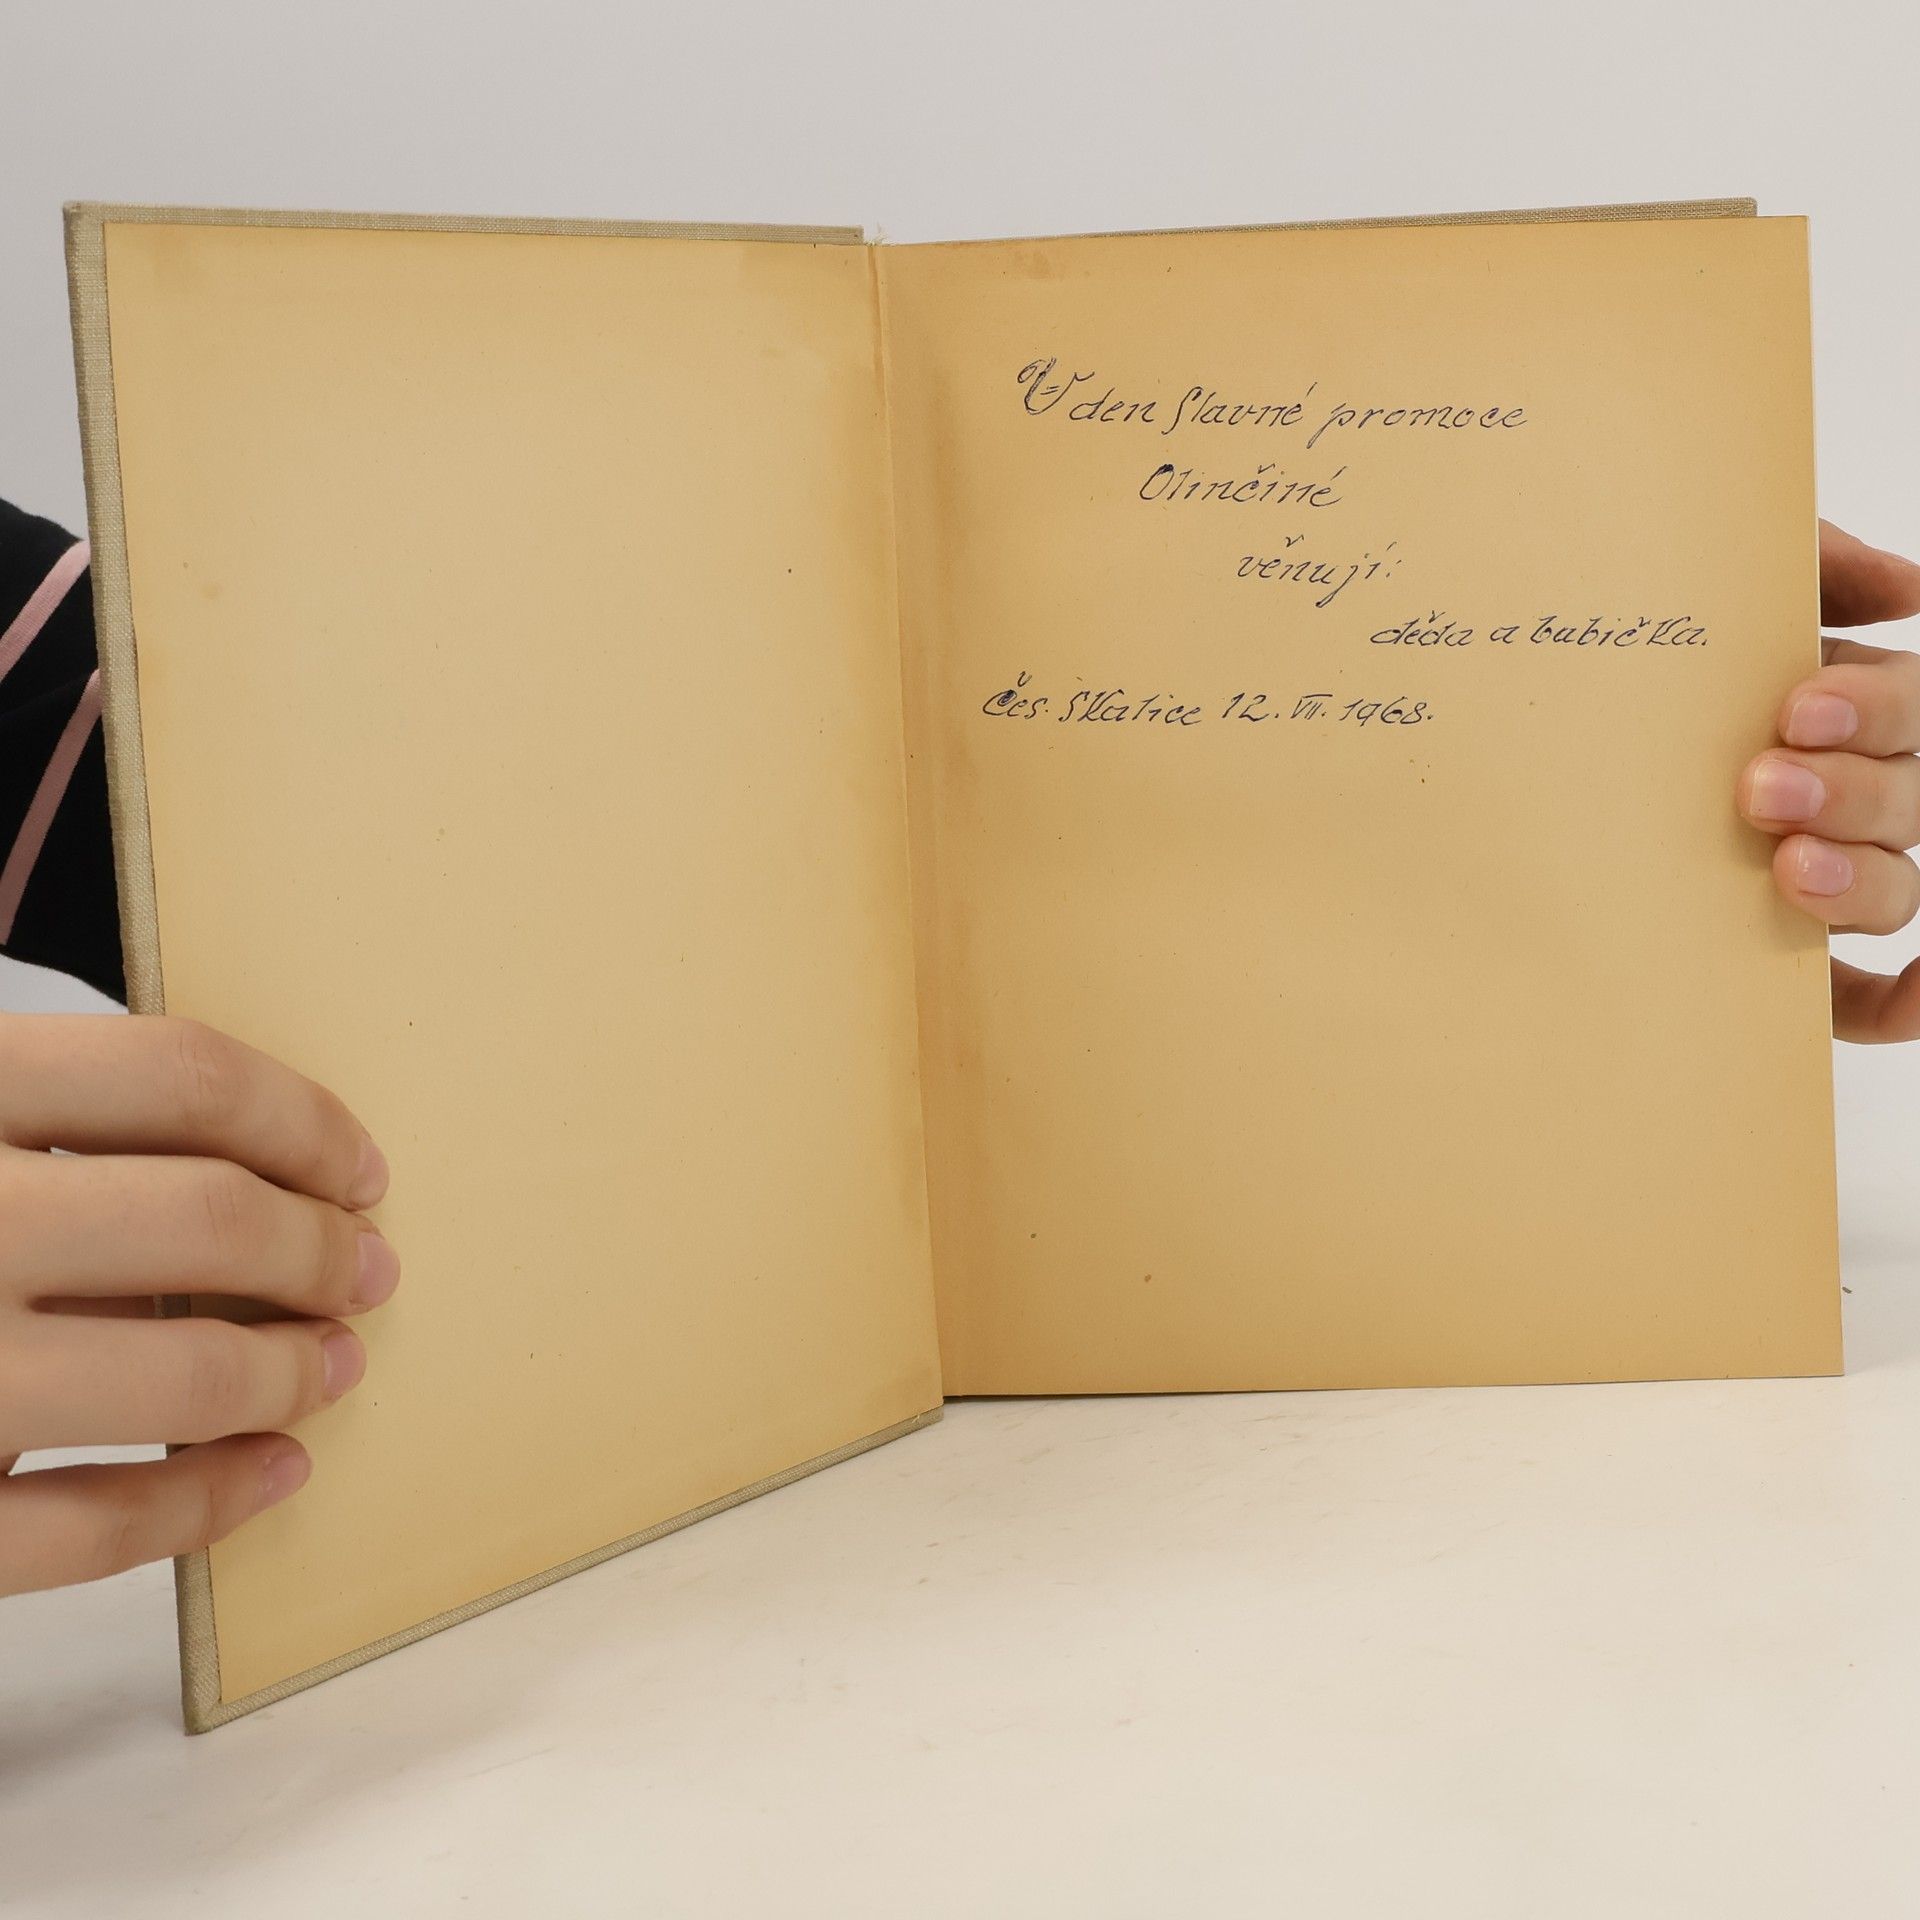 V den slavné promoce
Olinčiné
věnují:
děda a babička.
Čes. Skalice 12. VII. 1968.